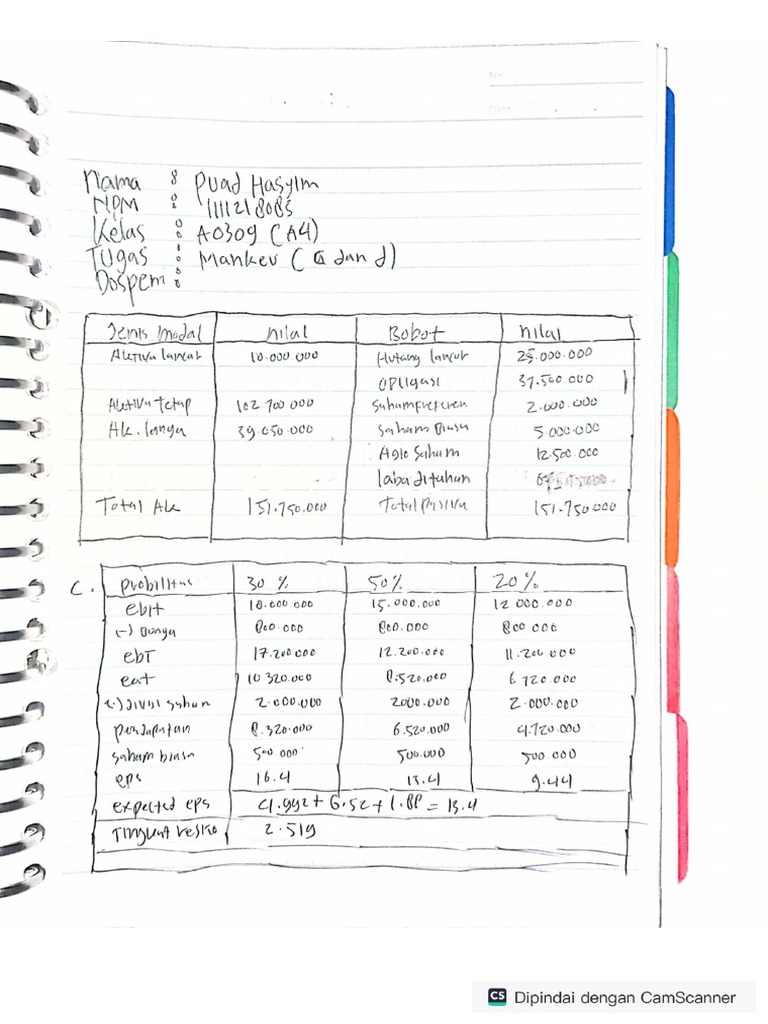 No
Date
Nama : Puad Hasyim
NPM : 1111218085
Kelas : A0309 (A4)
Tugas : Mankeu ( C dan d)
Dospem :
Jenis modal nilai Bobot nilai
Aktiva lancar 10.000.000 Hutang lancar 25.000.000
Opligasi 37.500.000
Aktiva tetap 102.700.000 saham preferen 2.000.000
Ak. lanya 39.050.000 saham biasa 5.000.000
Agio saham 12.500.000
laba ditahan
Total Ak 151.750.000 Total pasiva 151.750.000
C. Probilitas 30 % 50% 20%
ebit 18.000.000 15.000.000 12 000.000
(-) Bunga 800.000 800.000 800 000
ebT 17.200.000 12.200.000 11.200 000
eat 10 320.000 8.520.000 6 720.000
(-) divid saham 2.000.000 2000.000 2.000.000
pendapatan 8.320.000 6.520.000 4.720.000
saham biasa 500 000 500.000 500 000
eps 16.4 13.4 9.44
expected eps 4.992 + 6.52 + 1.88 = 13.4
Tingkat resiko 2.519
CS Dipindai dengan CamScanner